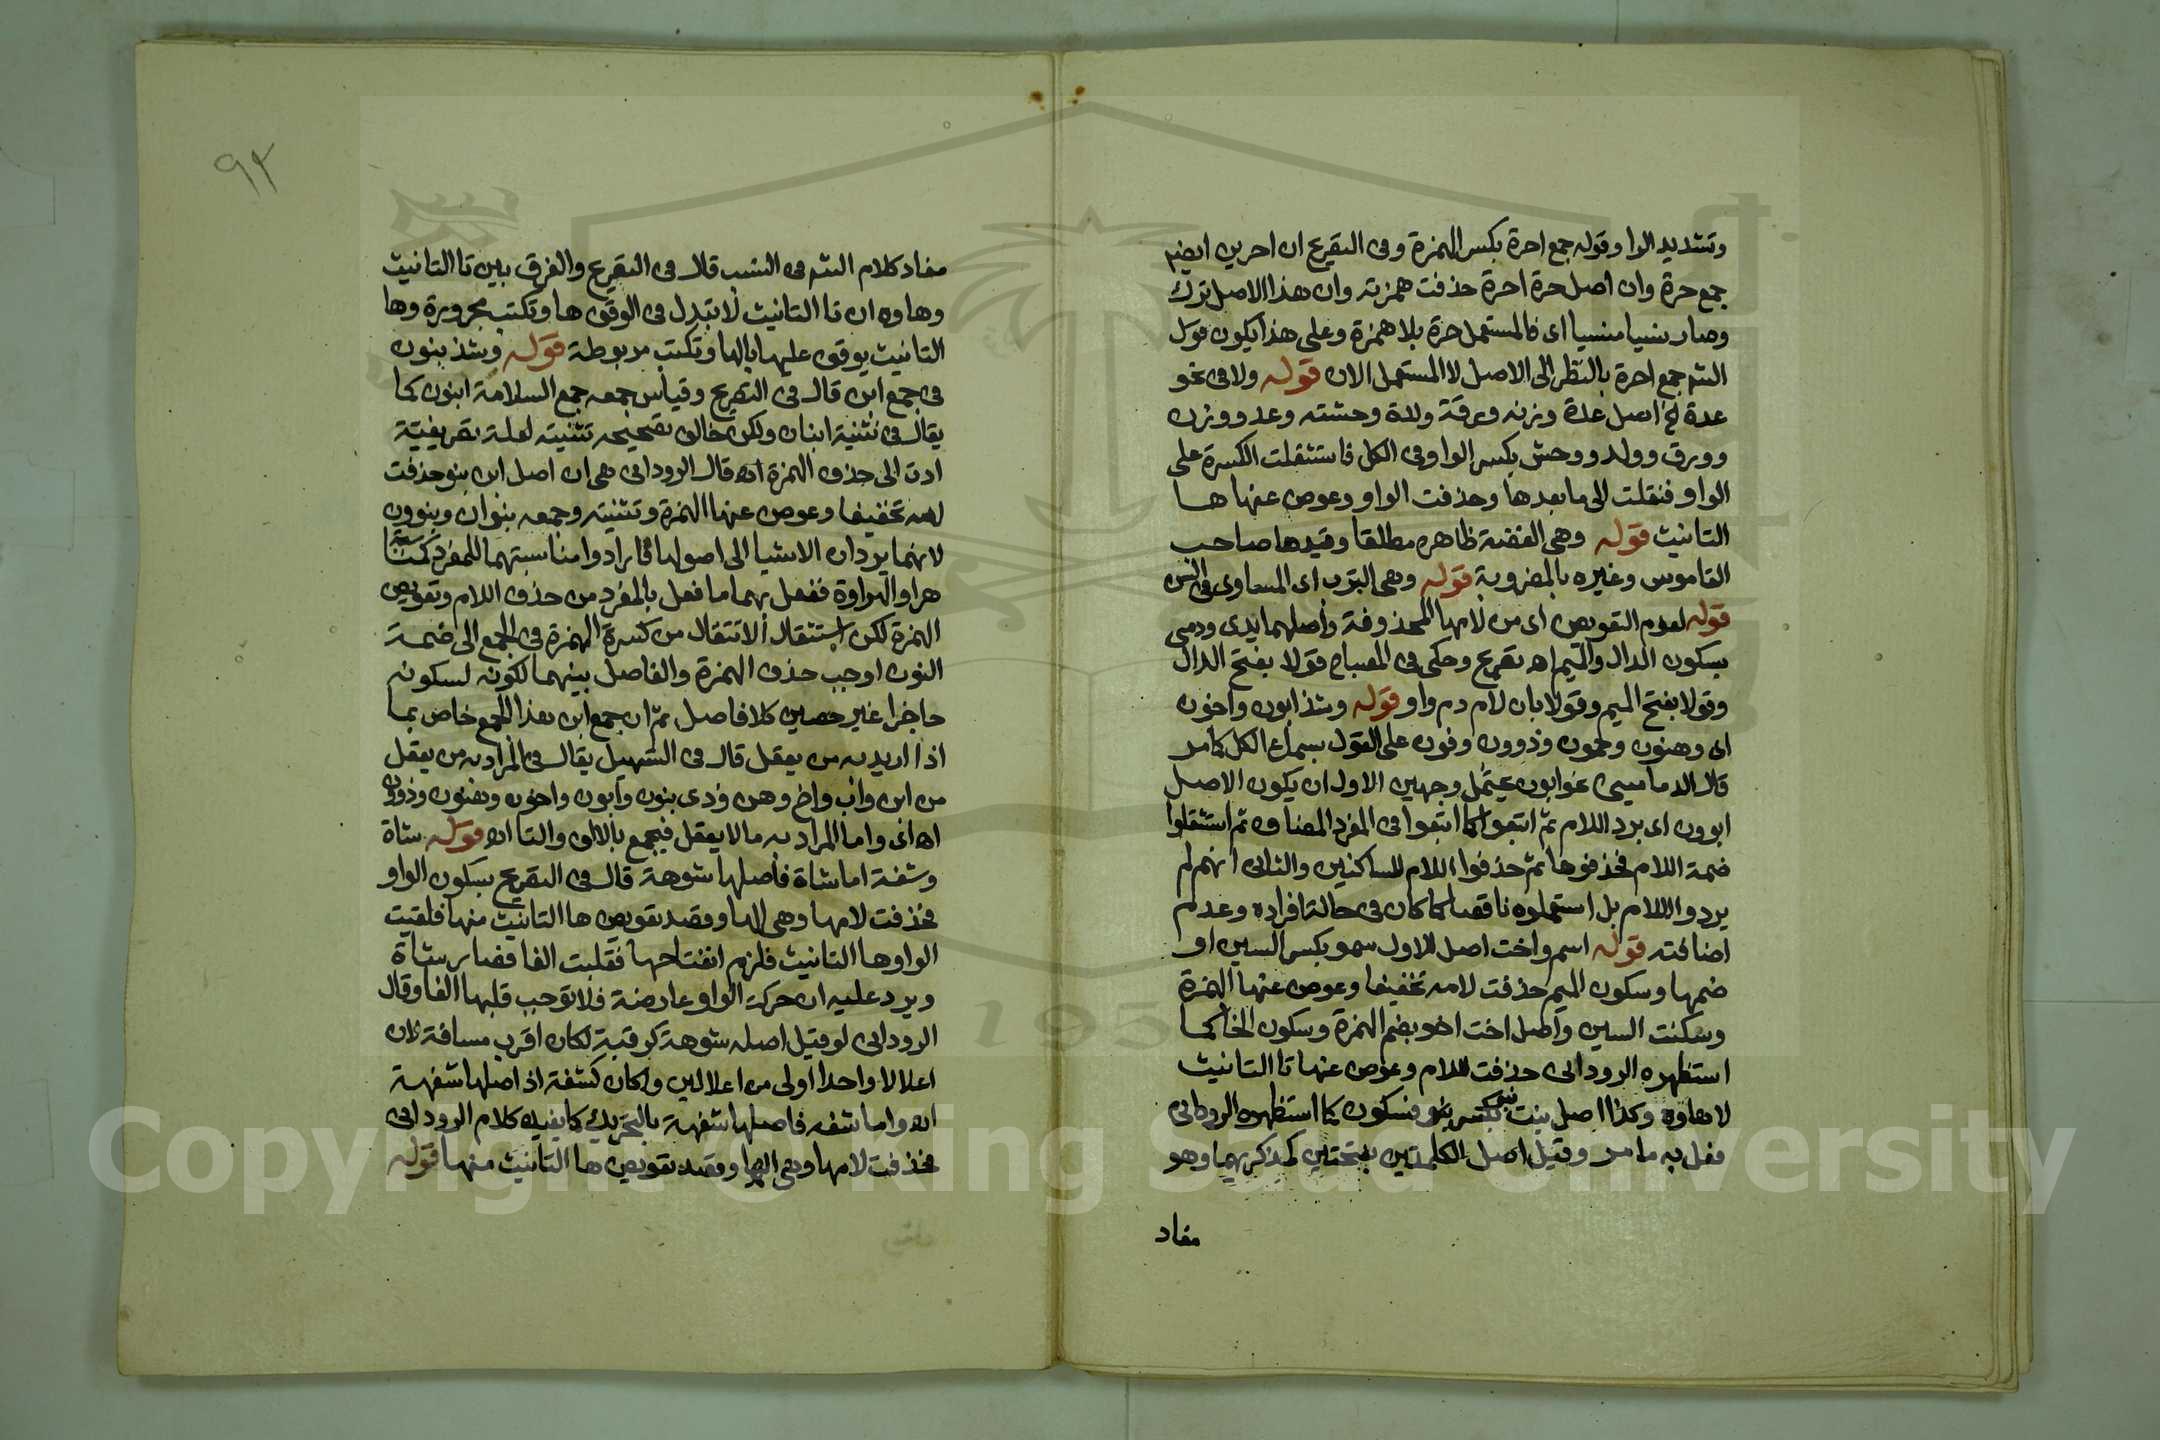 وتشديد الواو وقوله جمع احرة بكسر الهمزة وفى التصريح ان احرين ايضا
جمع حرة وان اصل حرة احرة حذفت همزته وان هذا الاصل ترك
وصار نسيا منسيا اى فالمستعمل حرة بلا همزة وعلى هذا يكون قول
الشم جمع احرة بالنظر الى الاصل لا المستعمل الان قوله ولا فى نحو
عدة لخ اصل عدة وزنه ورقة ولدة وحشته وعد ووزن
وورق وولد ووحش بكسر الواو فى الكل فاستثقلت الكسرة على
الواو فنقلت الى ما بعدها وحذفت الواو وعوض عنها هـا
التانيث قوله وهى الفضة ظاهره مطلقا وقيدها صاحب
القاموس وغيره بالمضروبة قوله وهى الترب اى المساوى فى السن
قوله لعدم التعويض اى من لامها المحذوفة واصلهما يدى ودمى
بسكون الدال والميم اه تصريح وحكى فى المصباح قولا بفتح الدال
وقولا بفتح الميم وقولا بان لام دم واو قوله وشذ ابون واخون
اى وهنون وحمون وذوون وفون على القول بسماع الكل كما مر
قال الدمامينى نحو ابون يحتمل وجهين الاول ان يكون الاصل
ابوون اى برد اللام ثم اتبعوا كما اتبعوا فى المفرد المضاف ثم استثقلوا
ضمة اللام فحذفوها ثم حذفوا اللام للساكنين والثانى انهم لم
يردوا اللام بل استعملوه ناقصا كما كان فى حالة افراده وعدم
اضافته قوله اسم واخت اصل الاول سمو بكسر السين او
ضمها وسكون الميم حذفت لامه تخفيفا وعوض عنها الهمزة
وسكنت السين واصل اخت اخو بضم الهمزة وسكون الخا كما
استظهره الرودانى حذفت اللام وعوض عنها تا التانيث
لا هاوه وكذا اصل بنت بنو بكسر فسكون كما استظهره الرودانى
فعل به ما مر وقيل اصل الكلمتين بفتحتين كمذكريهما وهو
مفاد
٩٢
مفاد كلام الشم فى النسب قال فى التصريح والفرق بين تا التانيث
وهاوه ان تا التانيث لا تبدل فى الوقف ها وتكتب مجرورة وها
التانيث يوقف عليها بالها وتكتب مربوطة قوله وشذ بنون
فى جمع ابن قال فى التصريح وقياس جمعه جمع السلامة ابنون كما
يقال فى تثنية ابنان ولكن خالف تصحيحه تثنيته لعلة تصريفية
ادت الى حذف الهمزة اه قال الرودانى هى ان اصل ابن بنو حذفت
لامه تخفيفا وعوض عنها الهمزة وتثنيته وجمعه بنوان وبنوون
لانهما يردان الاشيا الى اصولها فارادوا مناسبتهما للمفرد
هراوالهراوة ففعل بهما ما فعل بالمفرد من حذف اللام وتعويض
الهمزة لكن استثقال الانتقال من كسرة الهمزة فى الجمع الى ضمة
النون اوجب حذف الهمزة والفاصل بينهما لكونه لسكونه
حاجزا غير حصين كلا فاصل ثم ان جمع ابن هذا الجمع خاص بما
اذا اريد به من يعقل قال فى التسهيل يقال فى المراد به من يعقل
من ابن واب واخ وهن وذى بنون وابون واخون وهنون وذوون
اه اى واما المراد به ما لا يعقل فيجمع بالالف والتا اه قوله شاة
وشفة اما شاة فاصلها شوهة قال فى التصريح بسكون الواو
فحذفت لامها وهى الها وقصد تعويض ها التانيث منها فلقيت
الواو ها التانيث فلزم انفتاحها فقلبت الفا فصار شاة
ويرد عليه ان حركة الواو عارضة فلا توجب قلبها الفا وقال
الرودانى لو قيل اصله شوهة كرقبة لكان اقرب مسافة لان
اعلالا واحدا اولى من اعلالين ولكان كشفة اذ اصلها شفهة
اه واما شفه فاصلها شفهة بالتحريك كما يفيده كلام الرودانى
فحذفت لامها وهى الها وقصد تعويض ها التانيث منها قوله
Copyright © King Saud University
195